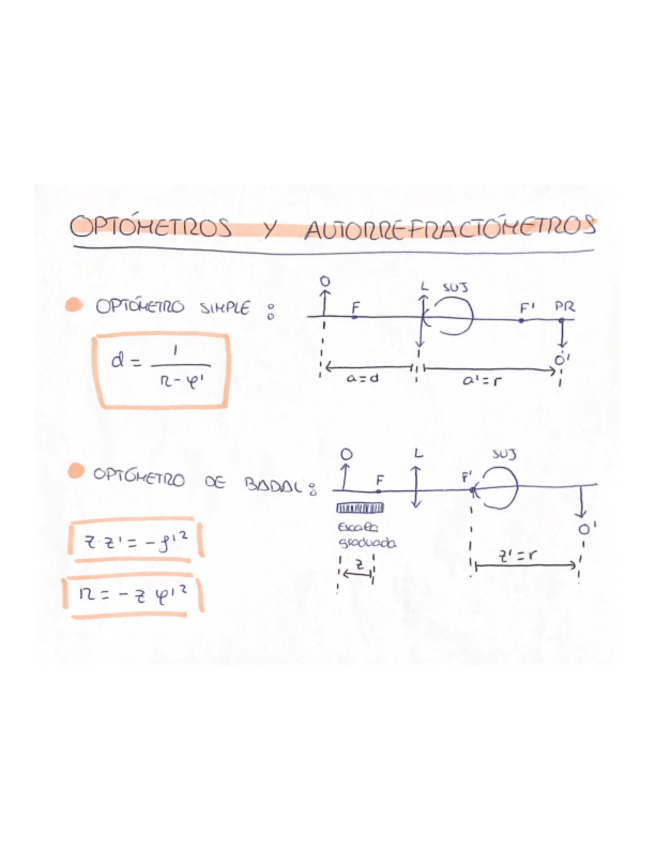 OPTÓMETROS Y AUTORREFRACTÓMETROS
OPTÓMETRO SIMPLE :
d = 1 / (R - φ')
O F L SUJ F' PR
O'
a=d a'=r
OPTÓMETRO DE BADAL :
O F L F' SUJ
O'
Escala
graduada
z
z'=r
z·z' = -f'²
R = -z φ'²